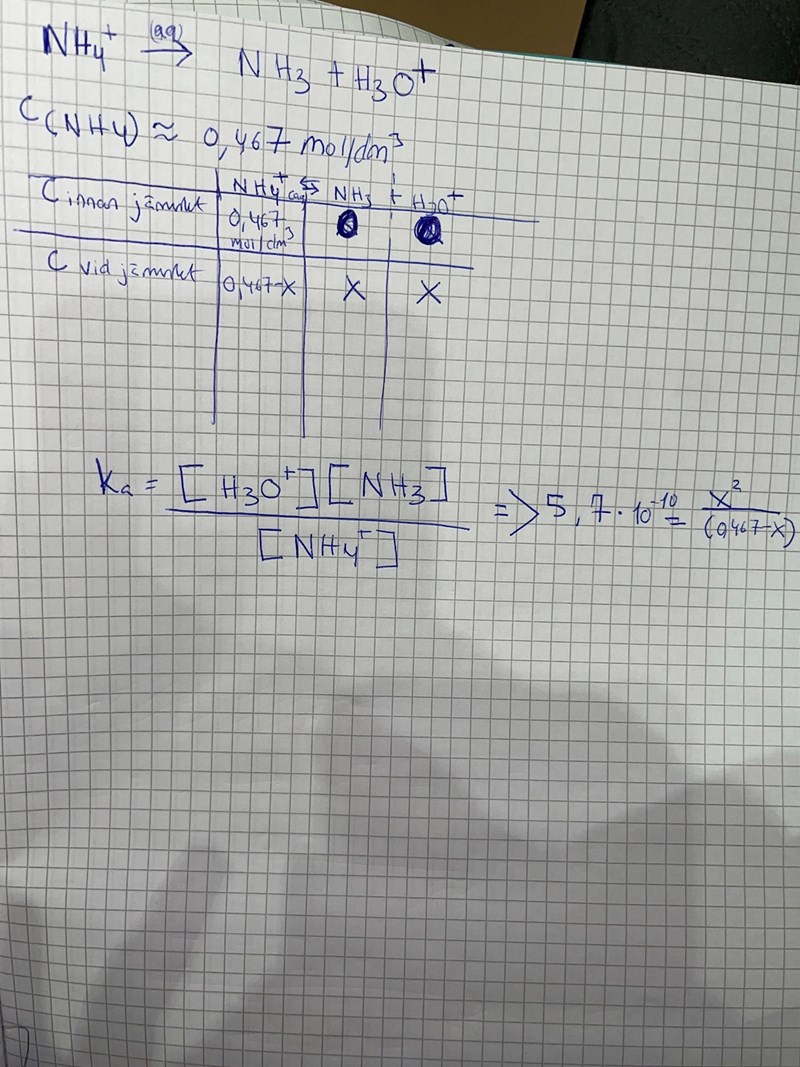 NH4+ (aq) → NH3 + H3O+
C(NH4) ≈ 0,467 mol/dm³
NH4+(aq) ⇆ NH3 + H3O+
C innan jämvkt 0,467 mol/dm³ 0 0
C vid jämvkt 0,467-x X X
Ka = [H3O+][NH3] / [NH4+] => 5,7·10⁻¹⁰ = x² / (0,467-x)